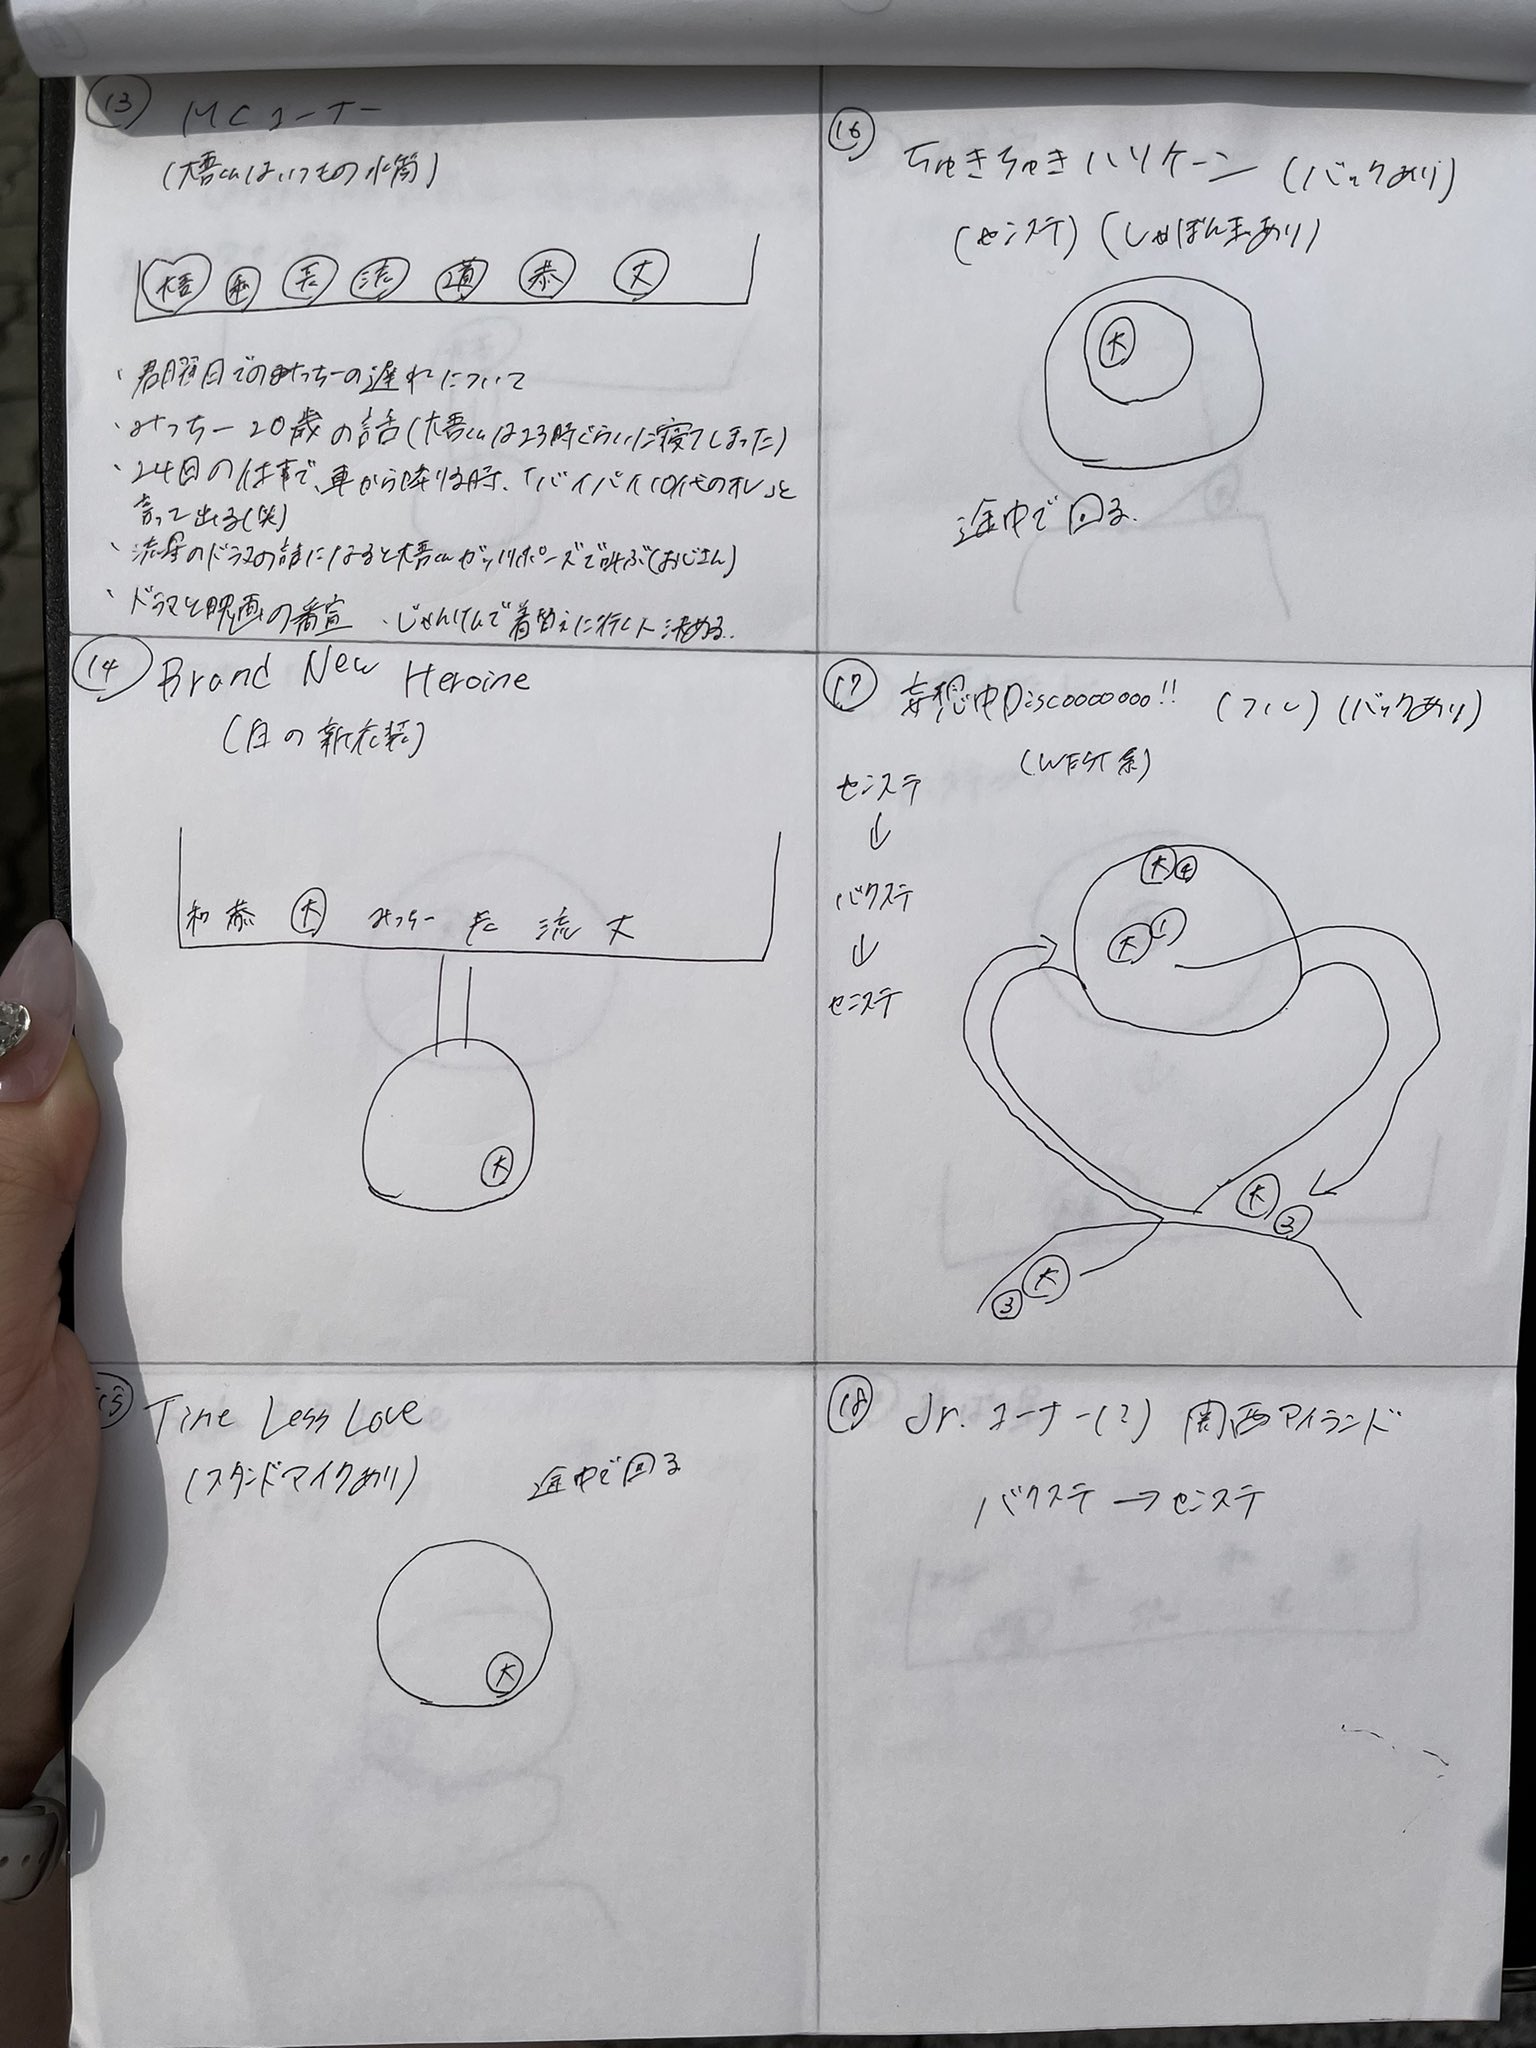 13
MCコーナー
(大吾くんはいつもの水筒)
大吾 和 長 流 道 恭 丈
・君曜日でのみっちーの遅れについて
・みっちー20歳の話(大吾くんは23時ぐらいに寝てしまった)
・24日の仕事で、車から降りる時、「バイバイ10代のオレ」と
言って出る(笑)
・流星のドラマの話になると大吾くんガッツポーズで叫ぶ(おじさん)
・ドラマと映画の番宣 ・じゃんけんで着替えに行く人決める。
14
Brand New Heroine
(白の新衣装)
和 恭 大 みっちー 長 流 丈
大
15
Time Less Love
(スタンドマイクあり) 途中で回る
大
16
ちゅきちゅきハリケーン (バックあり)
(センステ) (しゃぼん玉あり)
大
途中で回る.
17
妄想中Discooooooo!! (フル) (バックあり)
(WEST系)
センステ
↓
バクステ
↓
センステ
大 4
大 1
大 3
3 大
18
Jr.コーナー(2) 関西アイランド
バクステ → センステ